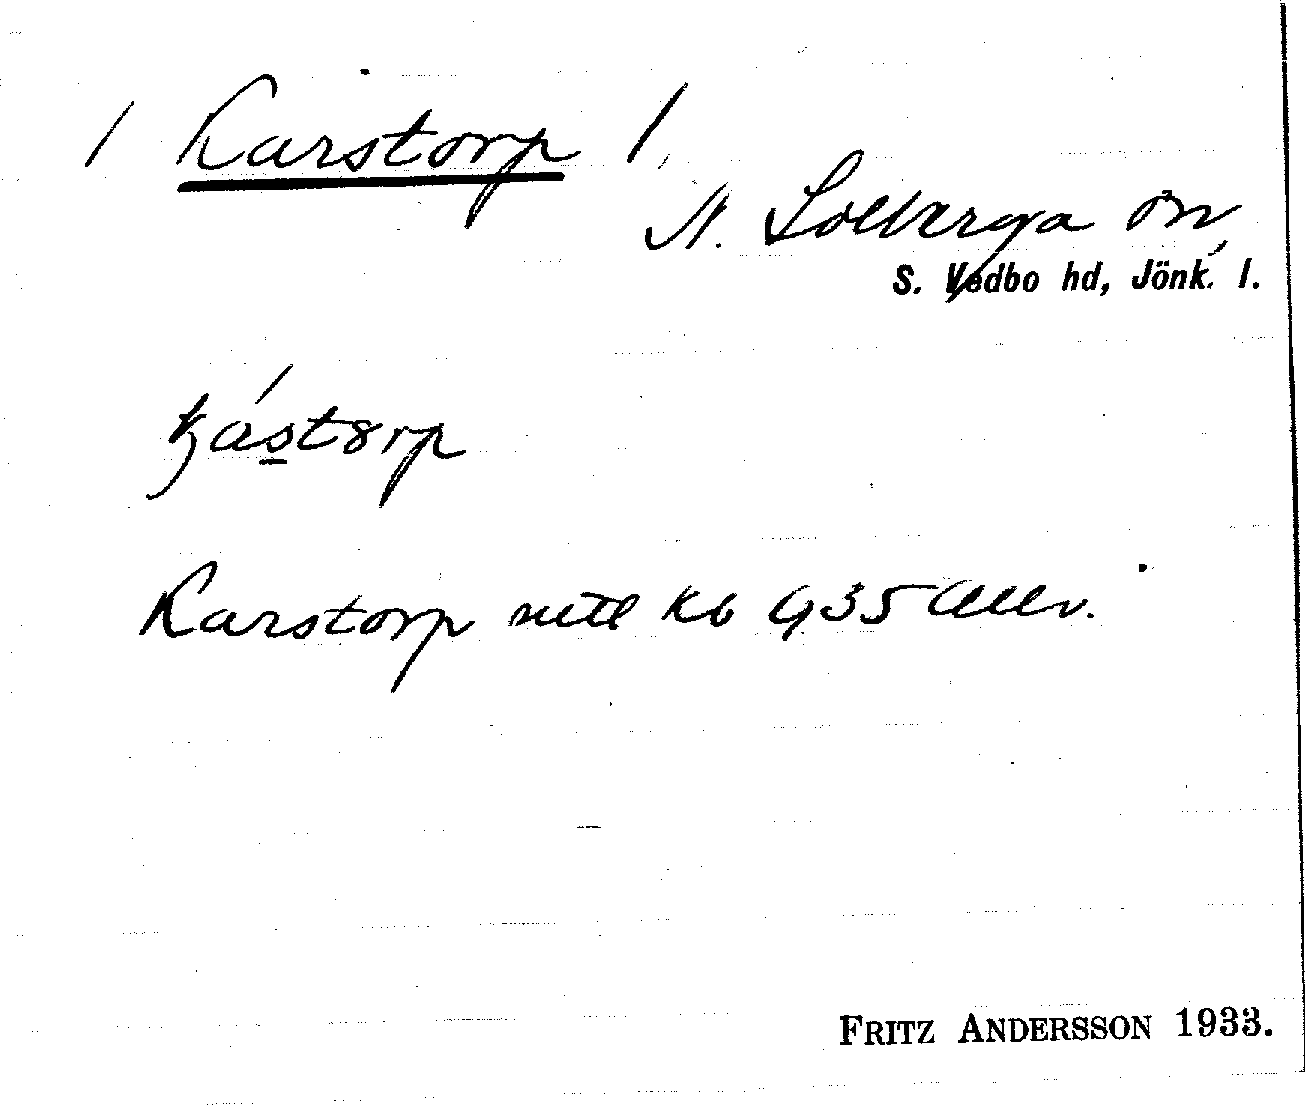 / Karstorp /
N. Solberga sn,
S. Vedbo hd, Jönk. l.
Karstorp mtl Kb G35
FRITZ ANDERSSON 1933.